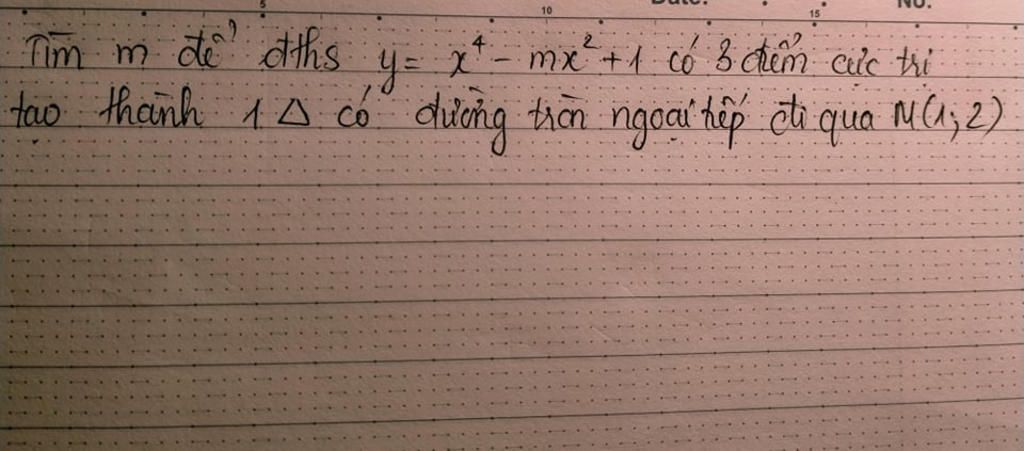 5 10 15 No.
Tìm m để đths y = x⁴ - mx² + 1 có 3 điểm cực trị
tạo thành 1 Δ có đường tròn ngoại tiếp đi qua M(1; 2)